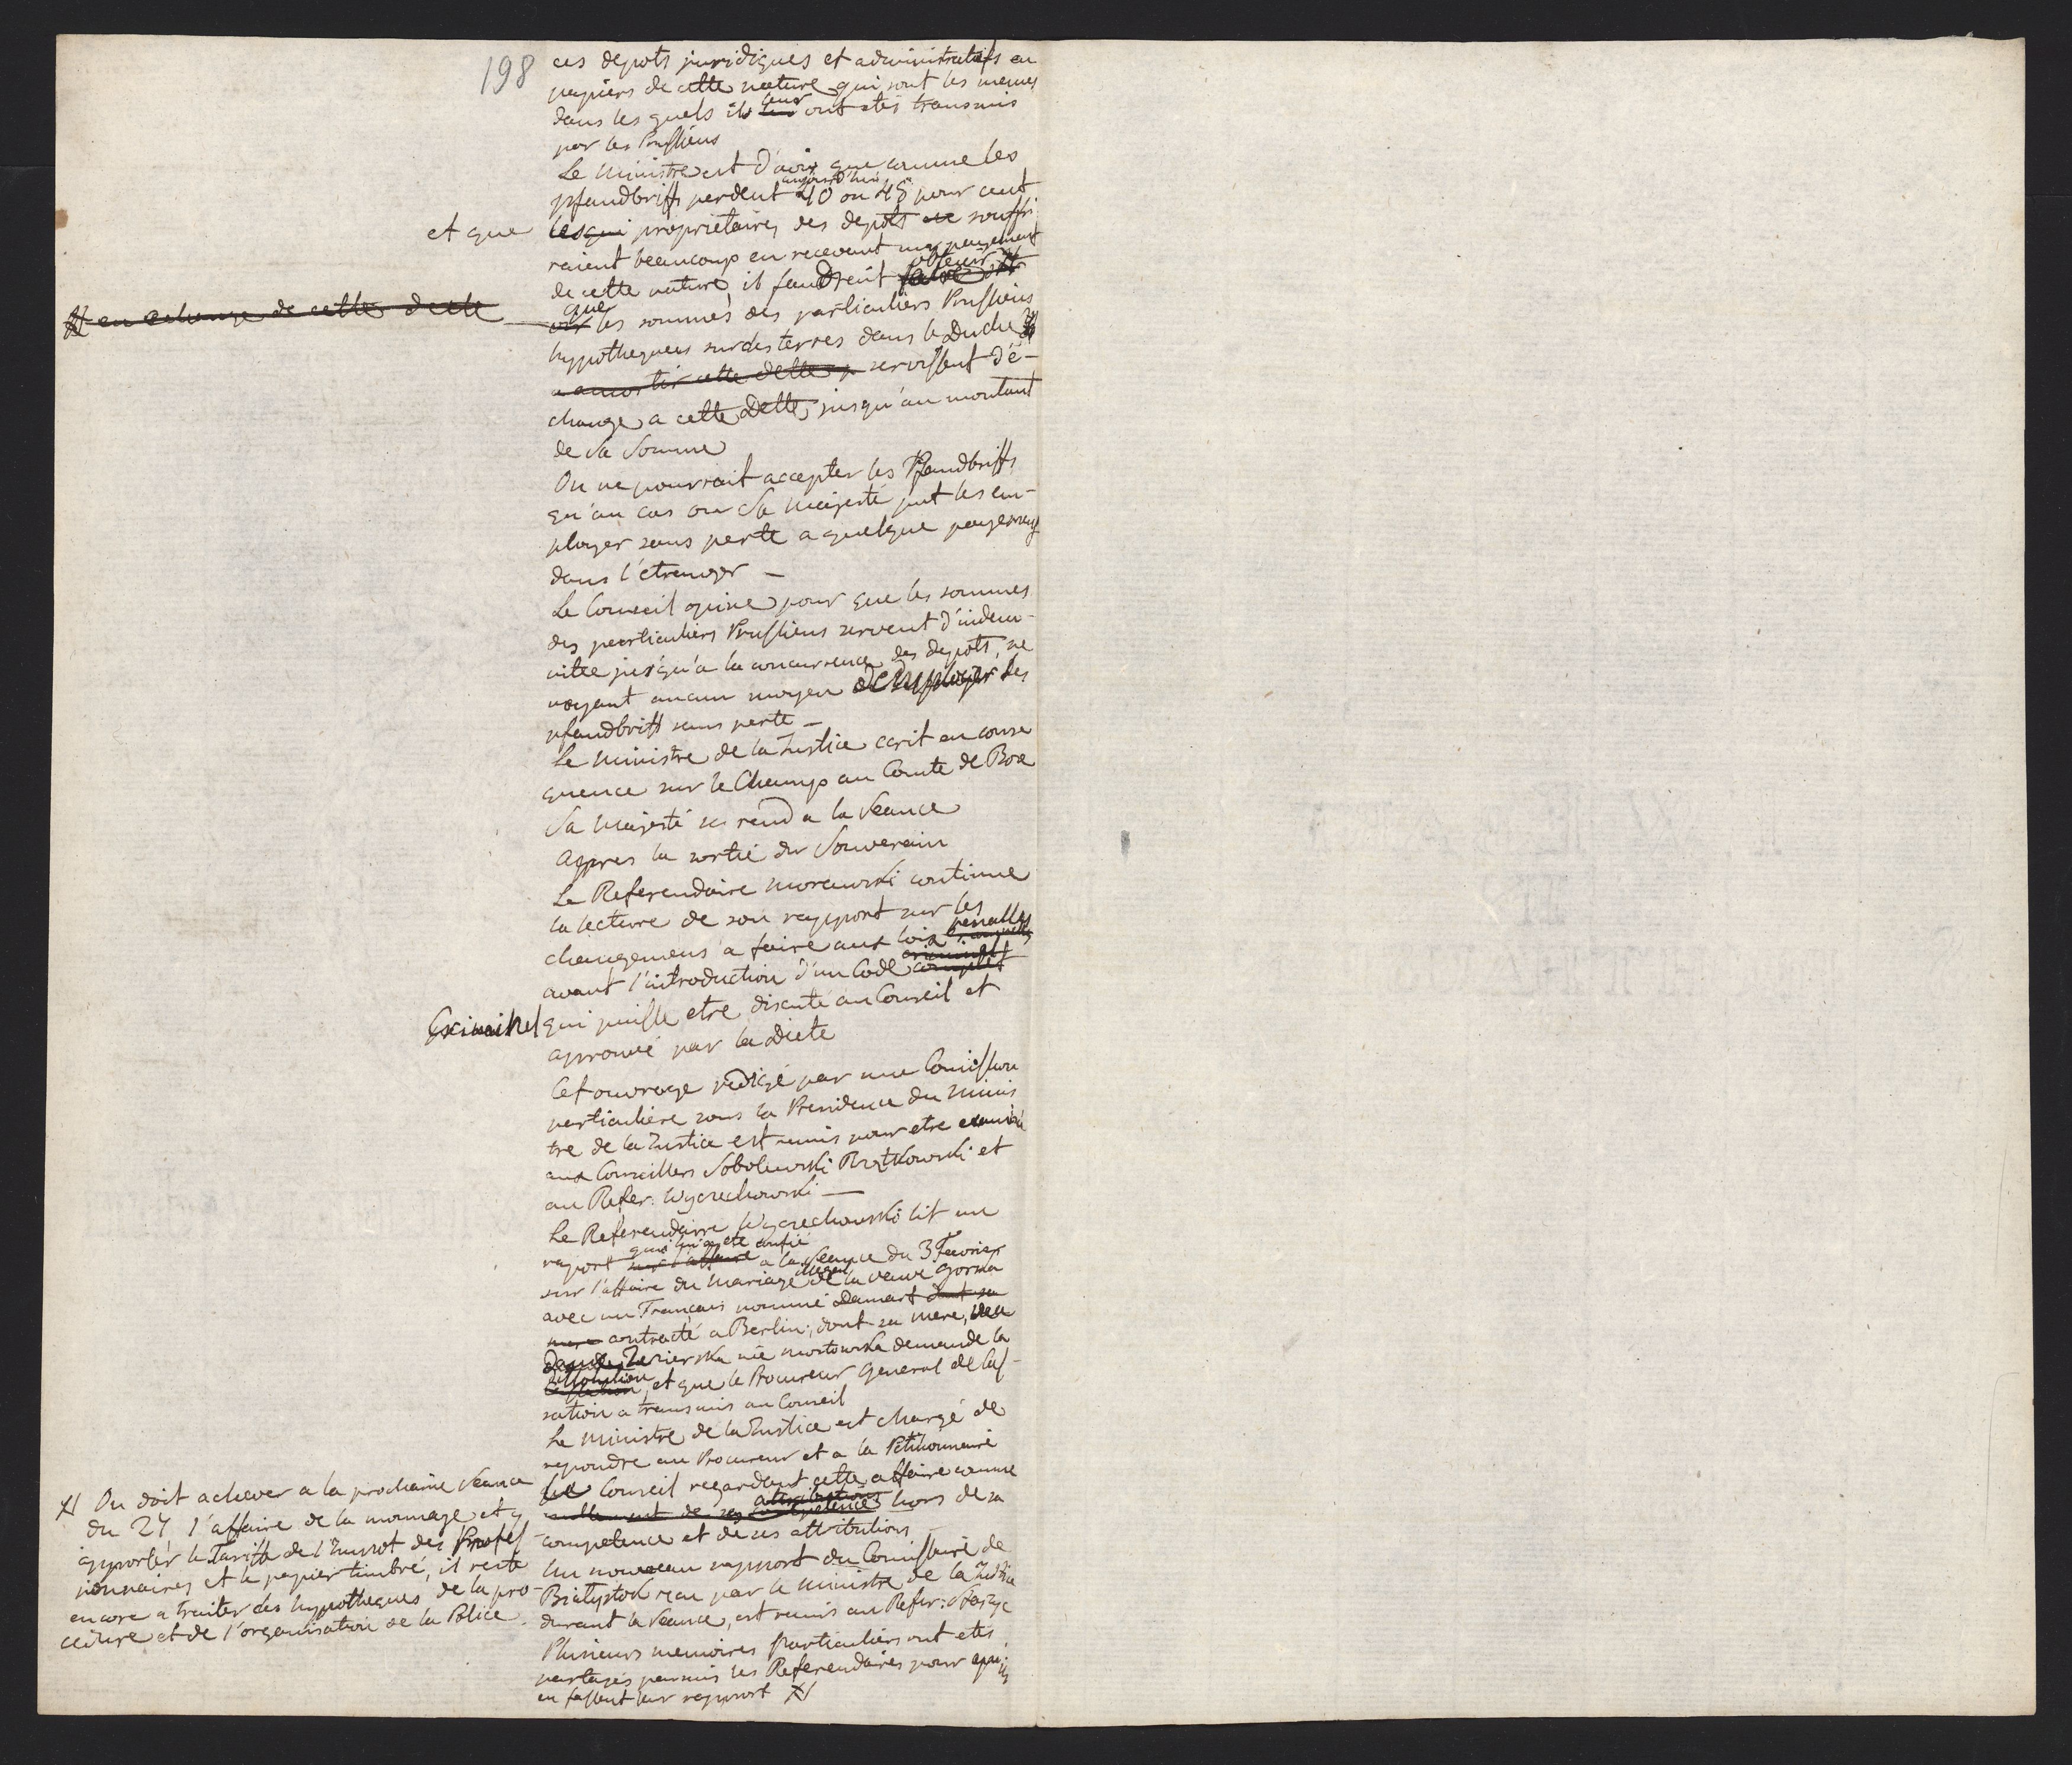 198
ces depots juridiques et administratifs en
papiers de cette nature qui sont les memes
dans les quels ils leur ont etés transmis
par les Prussiens
Le Ministre est d'avis que comme les
pfandbriffs perdent aujourd'hui 40 ou 45 pour cent
et que les qui proprietaires des depots souffri
raient beaucoup en recevant un payement
de cette nature, il faudrait obtenir
# en echange de cette dette
que les sommes des particuliers Prussiens
hypothequees sur des terres dans le Duché
a amortir cette dette servissent d'é-
change a cette Dette, jusqu'au montant
de sa Somme
On ne pourrait accepter les Pfandbriffs
qu'au cas ou Sa Majesté put les em-
ployer sans perte a quelque payement
dans l'etranger —
Le Conseil opine pour que les sommes
des particuliers Prussiens servent d'indem-
nitee jusqu'a la concurrence des depots, ne
voyant aucun moyen d'employer les
pfandbriff sans perte —
Le Ministre de la Justice ecrit en conse
quence sur le Champ au Comte de Bose
Sa Majesté se rend a la Seance
Appres la sortie du Souverain
Le Referendaire Morawski continue
la lecture de son rapport sur les
changemens a faire aux loix penalles
criminelles
avant l'introduction d'un Code complet
Criminel qui puisse etre discuté au Conseil et
aprouvé par la Diete
Cet ouvrage redigé par une Comission
particulière sous la Presidence du Minis
tre de la Justice est remis pour etre examiné
aux Conseillers Sobolewski et
au Refer: Wyczechowski —
Le Referendaire Wyczechowski lit un
raport qui lui a ete confié a la Seance du 3 Fevrier
sur l'affaire du Mariage de la veuve Gorska
avec un Français nommé Damart dont sa
mere contracté a Berlin, dont sa mere,
née Mostowska demande la
dissolution, et que le Procureur General de Cas-
sation a transmis au Conseil
Le Ministre de la Justice est chargé de
repondre au Procureur et a la Petitionnaire
Le Conseil regardant cette affaire comme
nullement de ses attributions competence hors de sa
competence et de ses attributions —
Un nouveau rapport du Comissaire de
Białystok reçu par le Ministre de la Justice
durant la Seance, est remis au Refer:
Plusieurs memoires particuliers ont etés
partagés parmis les Referendaires pour
en fassent leur rapport #
# On doit achever a la prochaine Seance
du 24 l'affaire de la monnaye et y
apporter le Tariffe de l'Impot des Profes
sionnaires et le papier timbré, il reste
encore a traiter des hypotheques de la pro-
cedure et de l'organisation de la Police.